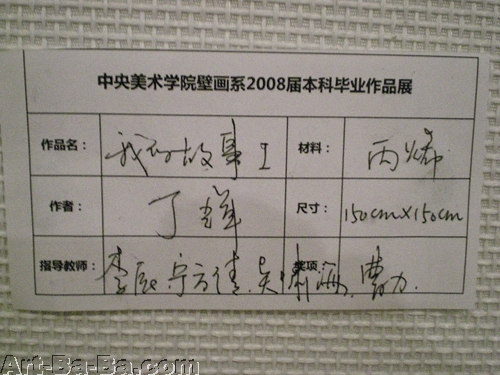 中央美术学院壁画系2008届本科毕业作品展
作品名： 我的故事 I 材料： 丙烯
作者： 丁 尺寸： 150cm×150cm
指导教师： 李辰 宁方倩 吴 海 曹力 奖项
Art-Ba-Ba.com